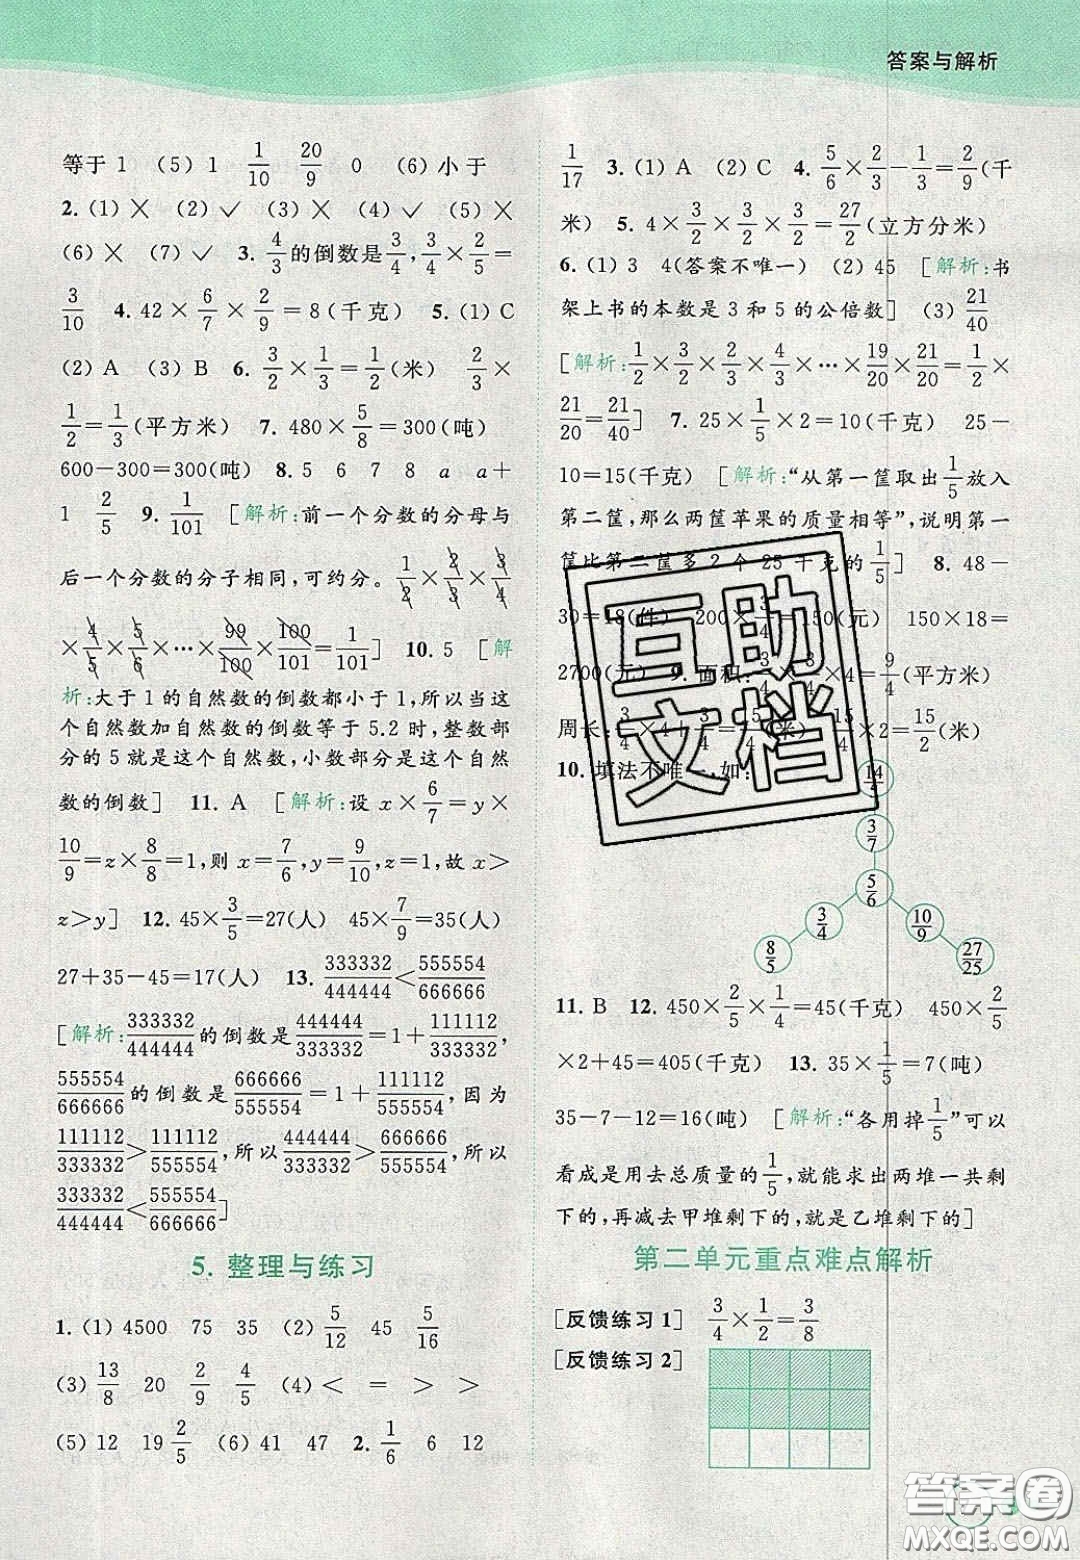 答案与解析
等于 1 (5) 1 1/10 20/9 0 (6) 小于
2. (1) ✕ (2) ✓ (3) ✕ (4) ✓ (5) ✕
(6) ✕ (7) ✓ 3. 4/3 的倒数是 3/4, 3/4 × 2/5 =
3/10 4. 42 × 6/7 × 2/9 = 8(千克) 5. (1) C
(2) A (3) B 6. 3/2 × 1/3 = 1/2 (米) 2/3 ×
1/2 = 1/3 (平方米) 7. 480 × 5/8 = 300(吨)
600-300=300(吨) 8. 5 6 7 8 a a+
1 2/5 9. 1/101 [解析:前一个分数的分母与
后一个分数的分子相同,可约分。1/2 × 2/3 × 3/4
× 4/5 × 5/6 × … × 99/100 × 100/101 = 1/101] 10. 5 [解
析:大于 1 的自然数的倒数都小于 1,所以当这
个自然数加自然数的倒数等于 5.2 时,整数部
分的 5 就是这个自然数,小数部分是这个自然
数的倒数] 11. A [解析:设 x × 6/7 = y ×
10/9 = z × 8/8 = 1,则 x = 7/6, y = 9/10, z=1,故 x>
z>y] 12. 45 × 3/5 = 27(人) 45 × 7/9 = 35(人)
27+35-45=17(人) 13. 333332/444444 < 555554/666666
[解析: 333332/444444 的倒数是 444444/333332 = 1 + 111112/333332,
555554/666666 的倒数是 666666/555554 = 1 + 111112/555554,因为
111112/333332 > 111112/555554,所以 444444/333332 > 666666/555554,所以
333332/444444 < 555554/666666]
5. 整理与练习
1. (1) 4500 75 35 (2) 5/12 45 5/16
(3) 13/8 20 2/9 4/5 (4) < = > >
(5) 12 19 2/5 (6) 41 47 2. 1/6 6 12
1/17 3. (1) A (2) C 4. 5/6 × 2/3 - 1/3 = 2/9 (千
米) 5. 4 × 3/2 × 3/2 × 3/2 = 27/2 (立方分米)
6. (1) 3 4(答案不唯一) (2) 45 [解析:书
架上书的本数是 3 和 5 的公倍数] (3) 21/40
[解析: 1/2 × 3/2 × 2/3 × 4/3 × … × 19/20 × 21/20 = 1/2 ×
21/20 = 21/40] 7. 25 × 1/5 × 2 = 10(千克) 25-
10=15(千克) [解析:“从第一筐取出 1/5 放入
第二筐,那么两筐苹果的质量相等”,说明第一
筐比第二筐多 2 个 25 千克的 1/5] 8. 48-
30=18(件) 200 × 3/4 = 150(元) 150×18=
2700(元) 9. 面积: 3/4 × 3/4 × 4 = 9/4 (平方米)
周长: 3/4 × 4 + 3/4 = 15/4 (米) 15/4 × 2 = 15/2 (米)
10. 填法不唯一,如:
3/7
5/6
3/4 10/9
8/5 27/25
11. B 12. 450 × 2/5 × 1/4 = 45(千克) 450 × 2/5
×2+45=405(千克) 13. 35 × 1/5 = 7(吨)
35-7-12=16(吨) [解析:“各用掉 1/5”可以
看成是用去总质量的 1/5,就能求出两堆一共剩
下的,再减去甲堆剩下的,就是乙堆剩下的]
第二单元重点难点解析
[反馈练习 1] 3/4 × 1/2 = 3/8
[反馈练习 2]
互助
文档
答案卷
MXQE.COM